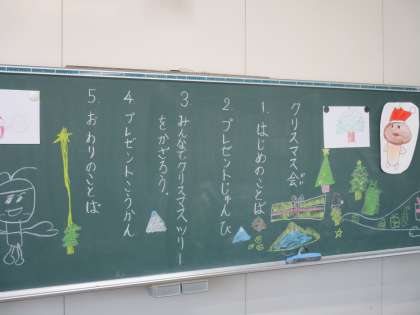 クリスマス会
1. はじめのことば
2. プレゼントじゅんび
3 みんなでクリスマスツリー
をかざろう。
4 プレゼントこうかん
5. おわりのことば